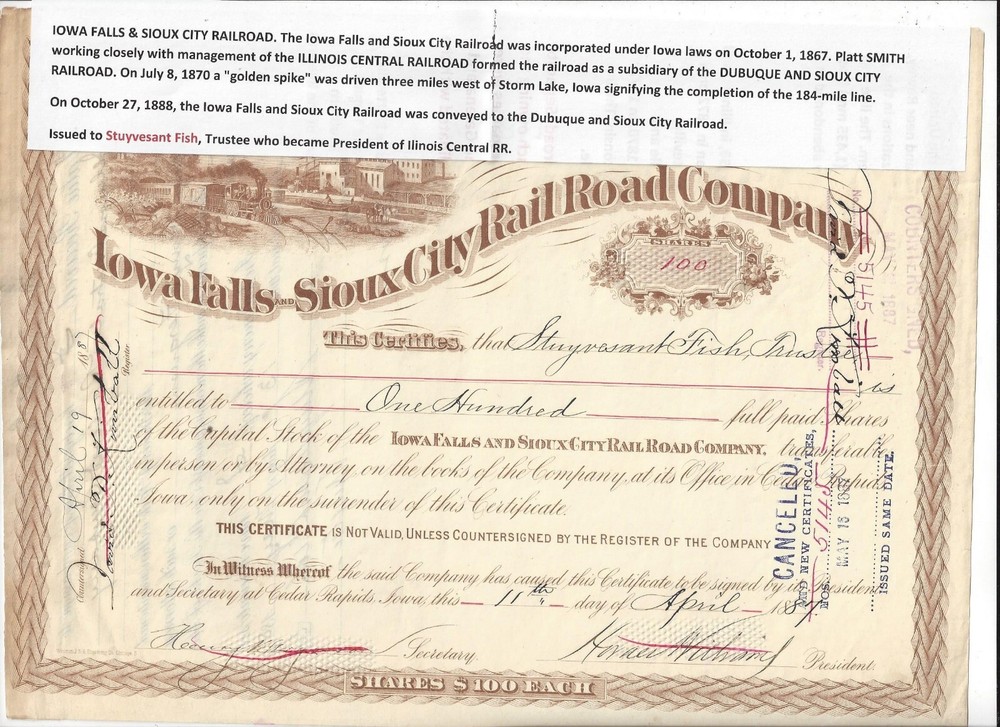 IOWA FALLS & SIOUX CITY RAILROAD. The Iowa Falls and Sioux City Railroad was incorporated under Iowa laws on October 1, 1867. Platt SMITH
working closely with management of the ILLINOIS CENTRAL RAILROAD formed the railroad as a subsidiary of the DUBUQUE AND SIOUX CITY
RAILROAD. On July 8, 1870 a "golden spike" was driven three miles west of Storm Lake, Iowa signifying the completion of the 184-mile line.
On October 27, 1888, the Iowa Falls and Sioux City Railroad was conveyed to the Dubuque and Sioux City Railroad.
Issued to Stuyvesant Fish, Trustee who became President of Ilinois Central RR.
Iowa Falls AND Sioux City Rail Road Company
SHARES
100
5145
This Certifies, that Stuyvesant Fish, Trustee
is
entitled to One Hundred full paid shares
of the Capital Stock of the IOWA FALLS AND SIOUX CITY RAIL ROAD COMPANY, transferable
in person or by Attorney on the books of the Company, at its Office in Cedar Rapids
Iowa, only on the surrender of this Certificate.
THIS CERTIFICATE IS NOT VALID, UNLESS COUNTERSIGNED BY THE REGISTER OF THE COMPANY
In Witness Whereof the said Company has caused this Certificate to be signed by its President
and Secretary at Cedar Rapids, Iowa, this 11th day of April 1887
Secretary.
Horace Williams
President.
SHARES $100 EACH
Countersigned April 19 1887
Register.
CANCELLED,
AND NEW CERTIFICATES,
NOS. 5145
MAY 16 1887
ISSUED SAME DATE.